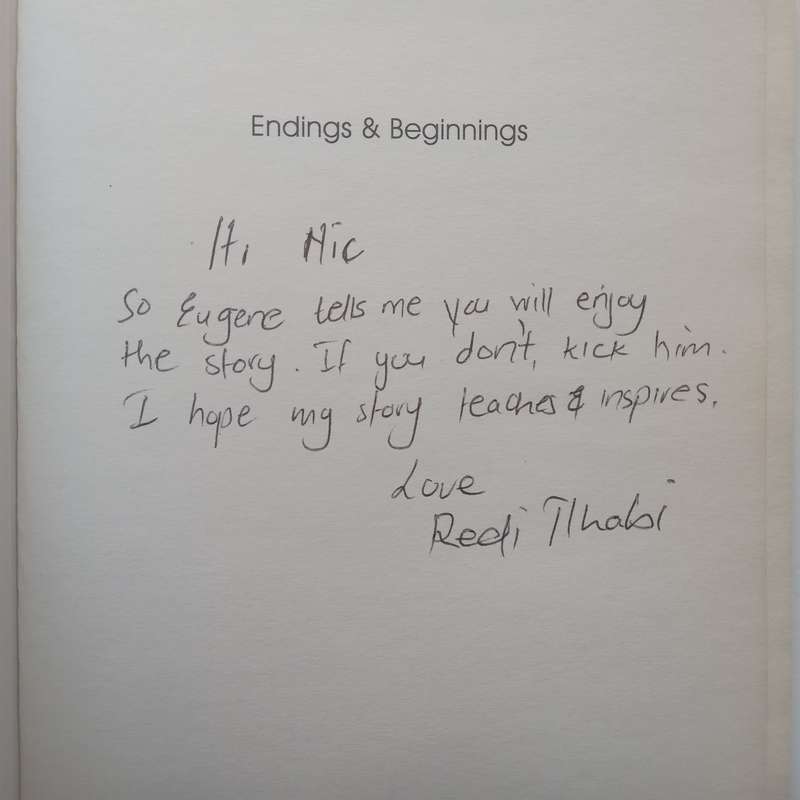 Endings & Beginnings
Hi Nic
So Eugene tells me you will enjoy
the story. If you don't, kick him.
I hope my story teaches & inspires.
Love
Redi Tlhabi